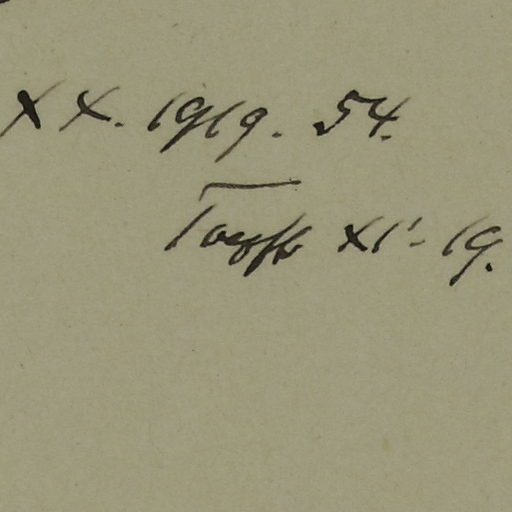 XX. 1919. 54.
XI.- 19.